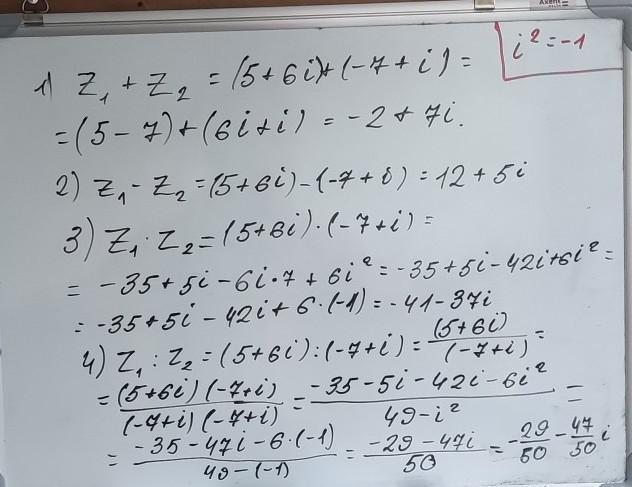 Axent
i² = -1
1) Z₁ + Z₂ = (5+6i)+(-7+i) =
= (5-7)+(6i+i) = -2+7i.
2) Z₁ - Z₂ = (5+6i)-(-7+i) = 12+5i
3) Z₁·Z₂ = (5+6i)·(-7+i) =
= -35+5i-6i·7+6i² = -35+5i-42i+6i² =
= -35+5i-42i+6·(-1) = -41-37i
4) Z₁ : Z₂ = (5+6i):(-7+i) = (5+6i)/(-7+i) =
= (5+6i)(-7+i)/(-7+i)(-7+i) = -35-5i-42i-6i²/49-i² =
= -35-47i-6·(-1)/49-(-1) = -29-47i/50 = -29/50 - 47/50 i